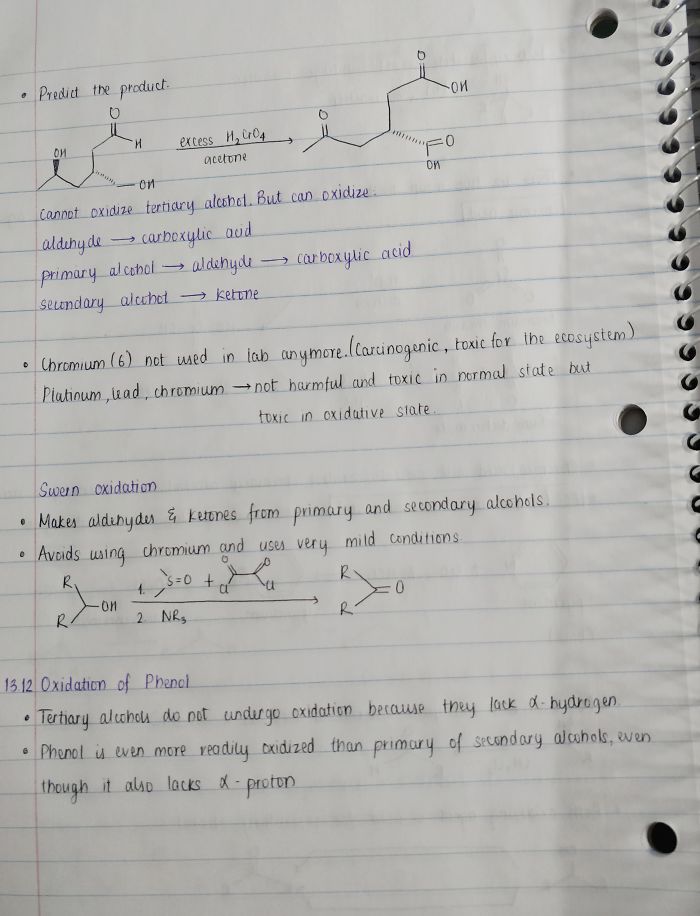 • Predict the product.
O
OH
H
OH
excess H2CrO4
acetone
O
O
OH
O
OH
Cannot oxidize tertiary alcohol. But can oxidize:
aldehyde → carboxylic acid
primary alcohol → aldehyde → carboxylic acid
secondary alcohol → ketone
• Chromium (6) not used in lab anymore. (Carcinogenic, toxic for the ecosystem)
Platinum, lead, chromium → not harmful and toxic in normal state but
toxic in oxidative state.
Swern oxidation
• Makes aldehydes & ketones from primary and secondary alcohols.
• Avoids using chromium and uses very mild conditions
R
R
OH
1. S=O + O O Cl Cl
2. NR3
R
R
O
13.12 Oxidation of Phenol
• Tertiary alcohols do not undergo oxidation because they lack α-hydrogen.
• Phenol is even more readily oxidized than primary of secondary alcohols, even
though it also lacks α-proton